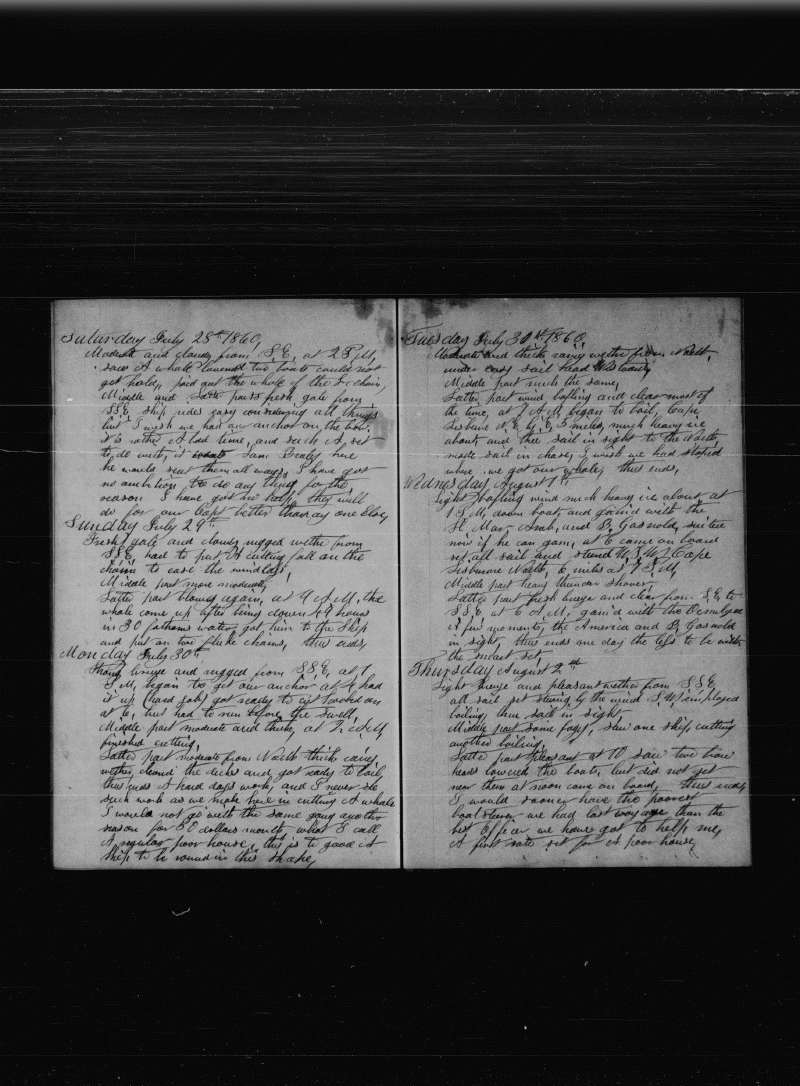 Saturday July 28th 1860,
Moderate and cloudy from S.E, at 2 P M,
saw A whale lowered two boats could not
get hold, paid out the whole of the chain,
Middle and latter parts fresh gale from
SSE ship rides easy considering all things
but I wish we had an anchor on the bow.
it is rather A bad time, and such A set
to do with, it Sam Braley here
he would seat them all ways, I have got
no ambition to do any thing for the
reason I have got no help, they will
do for our Capt better than any one else,
Sunday July 29th
Fresh gale and cloudy rugged wether from
SSE, had to put A cutting fall on the
chain to ease the windlass,
Middle part more moderate,
Latter part blowing again, at 9 A.M, the
whale come up after being down 49 hours
in 30 fathoms water, got him to the Ship
and put on two fluke chains, thus ends,
Monday July 30th
Strong breeze and rugged from SSE, at 1
P.M, began to get our anchor at 4 had
it up (hard job) got ready to cut hooked on
at 6, but had to run before the swell,
Middle part moderate and thick, at 2 A M,
finished cutting,
Latter part moderate from North thick rainy
wether, cleared the decks and got ready to boil,
thus ends A hard days work, and I never see
such work as we make here in cutting A whale
I would not go with the same gang another
season for 50 dollars month, what I call
A regular poor house, this is to good A
ship to be round in this shape,
Tuesday July 30th 1860,
Moderate and thick rainy wether from North,
under easy sail head Westward,
Middle part much the same,
Latter part wind bafling and clear most of
the time, at 7 A M began to boil, Cape
Lisburne N.E. by E, 5 miles, much heavy ice
about, and three sail in sight to the North,
made sail in chase, I wish we had stoped
where we got our whale, thus ends,
Wednesday August 1st
Light bafling wind much heavy ice about, at
1 P.M, down boat, and gam'd with the
St Mary, Arab, and B, Gosnold,
now if he can gam, at 6 came on board
set all sail and stead W.S.W, Cape
Lisburne North, 6 miles at 7 P M,
Middle part heavy thunder shower
Latter part fresh breeze and clear from S.E to
SSE, at 6 A.M, gam'd with the Ocmulgee
A few moments, the America and B, Gosnold
in sight, thus ends one day the less to be with
the meanest set,
Thursday August 2nd
Light breeze and pleasant wether from SSE
all sail set steering by the wind S.W, employed
boiling, three sail in sight,
Middle part some foggy, saw one ship cutting
another boiling,
Latter part pleasant at 10 saw two bow
heads lowered the boats, but did not get
near them at noon came on board, thus ends
I would sooner have the poorest
boatsteerer we had last voyage than the
best Officer we have got to help me,
A first rate set for A poor house,